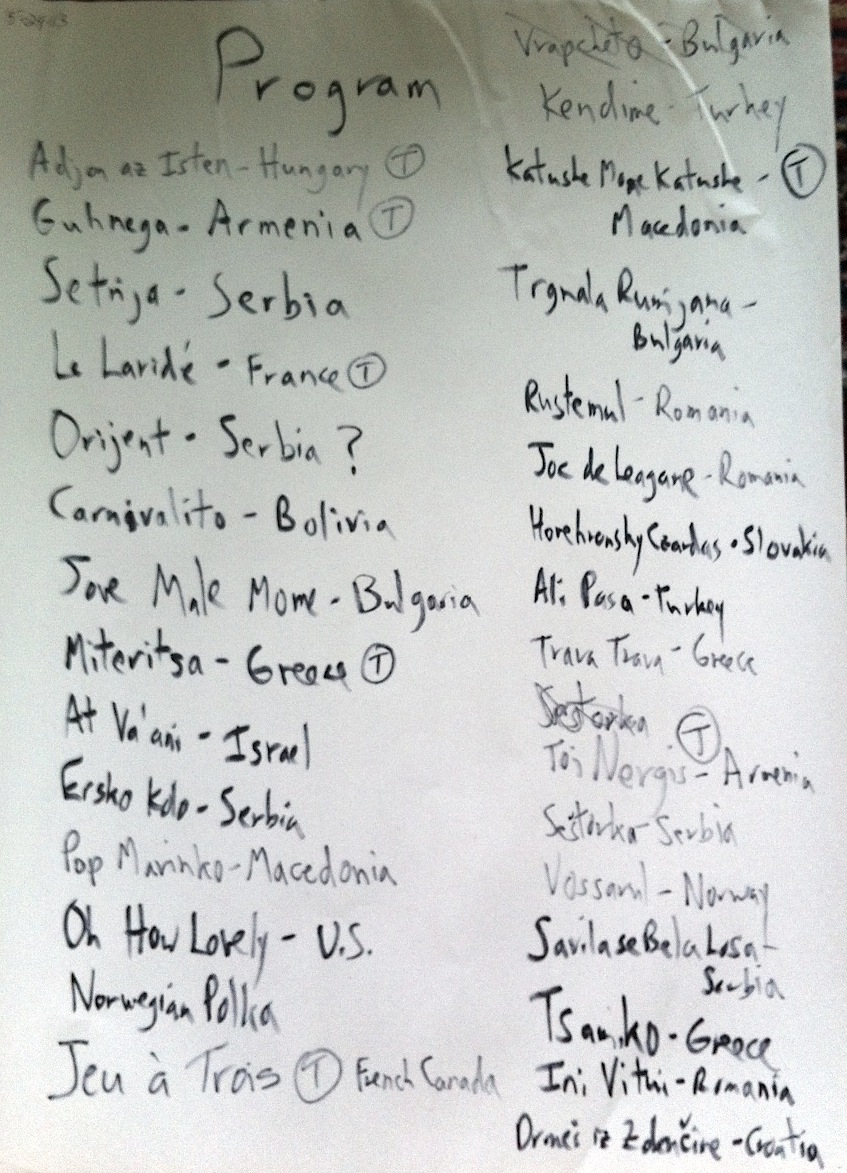 Program
Adjon az Isten - Hungary T
Guhnega - Armenia T
Setnja - Serbia
Le Laridé - France T
Orijent - Serbia ?
Carnivalito - Bolivia
Jove Male Mome - Bulgaria
Miteritsa - Greece T
At Va'ani - Israel
Ersko Kolo - Serbia
Pop Marinko - Macedonia
Oh How Lovely - U.S.
Norwegian Polka
Jeu à Trois T French Canada
Vrapcheto - Bulgaria
Kendime - Turkey
Katushe Mome Katushe - T
Macedonia
Trgnala Rumjana -
Bulgaria
Rustemul - Romania
Joc de Leagane - Romania
Horehronsky Czardas - Slovakia
Ali Pasa - Turkey
Trava Trava - Greece
Sestorka T
Toi Nergis - Armenia
Sestorka - Serbia
Vossarul - Norway
Savila se Bela Losa -
Serbia
Tsamiko - Greece
Ini Vitui - Romania
Drmeš iz Zdenčine - Croatia